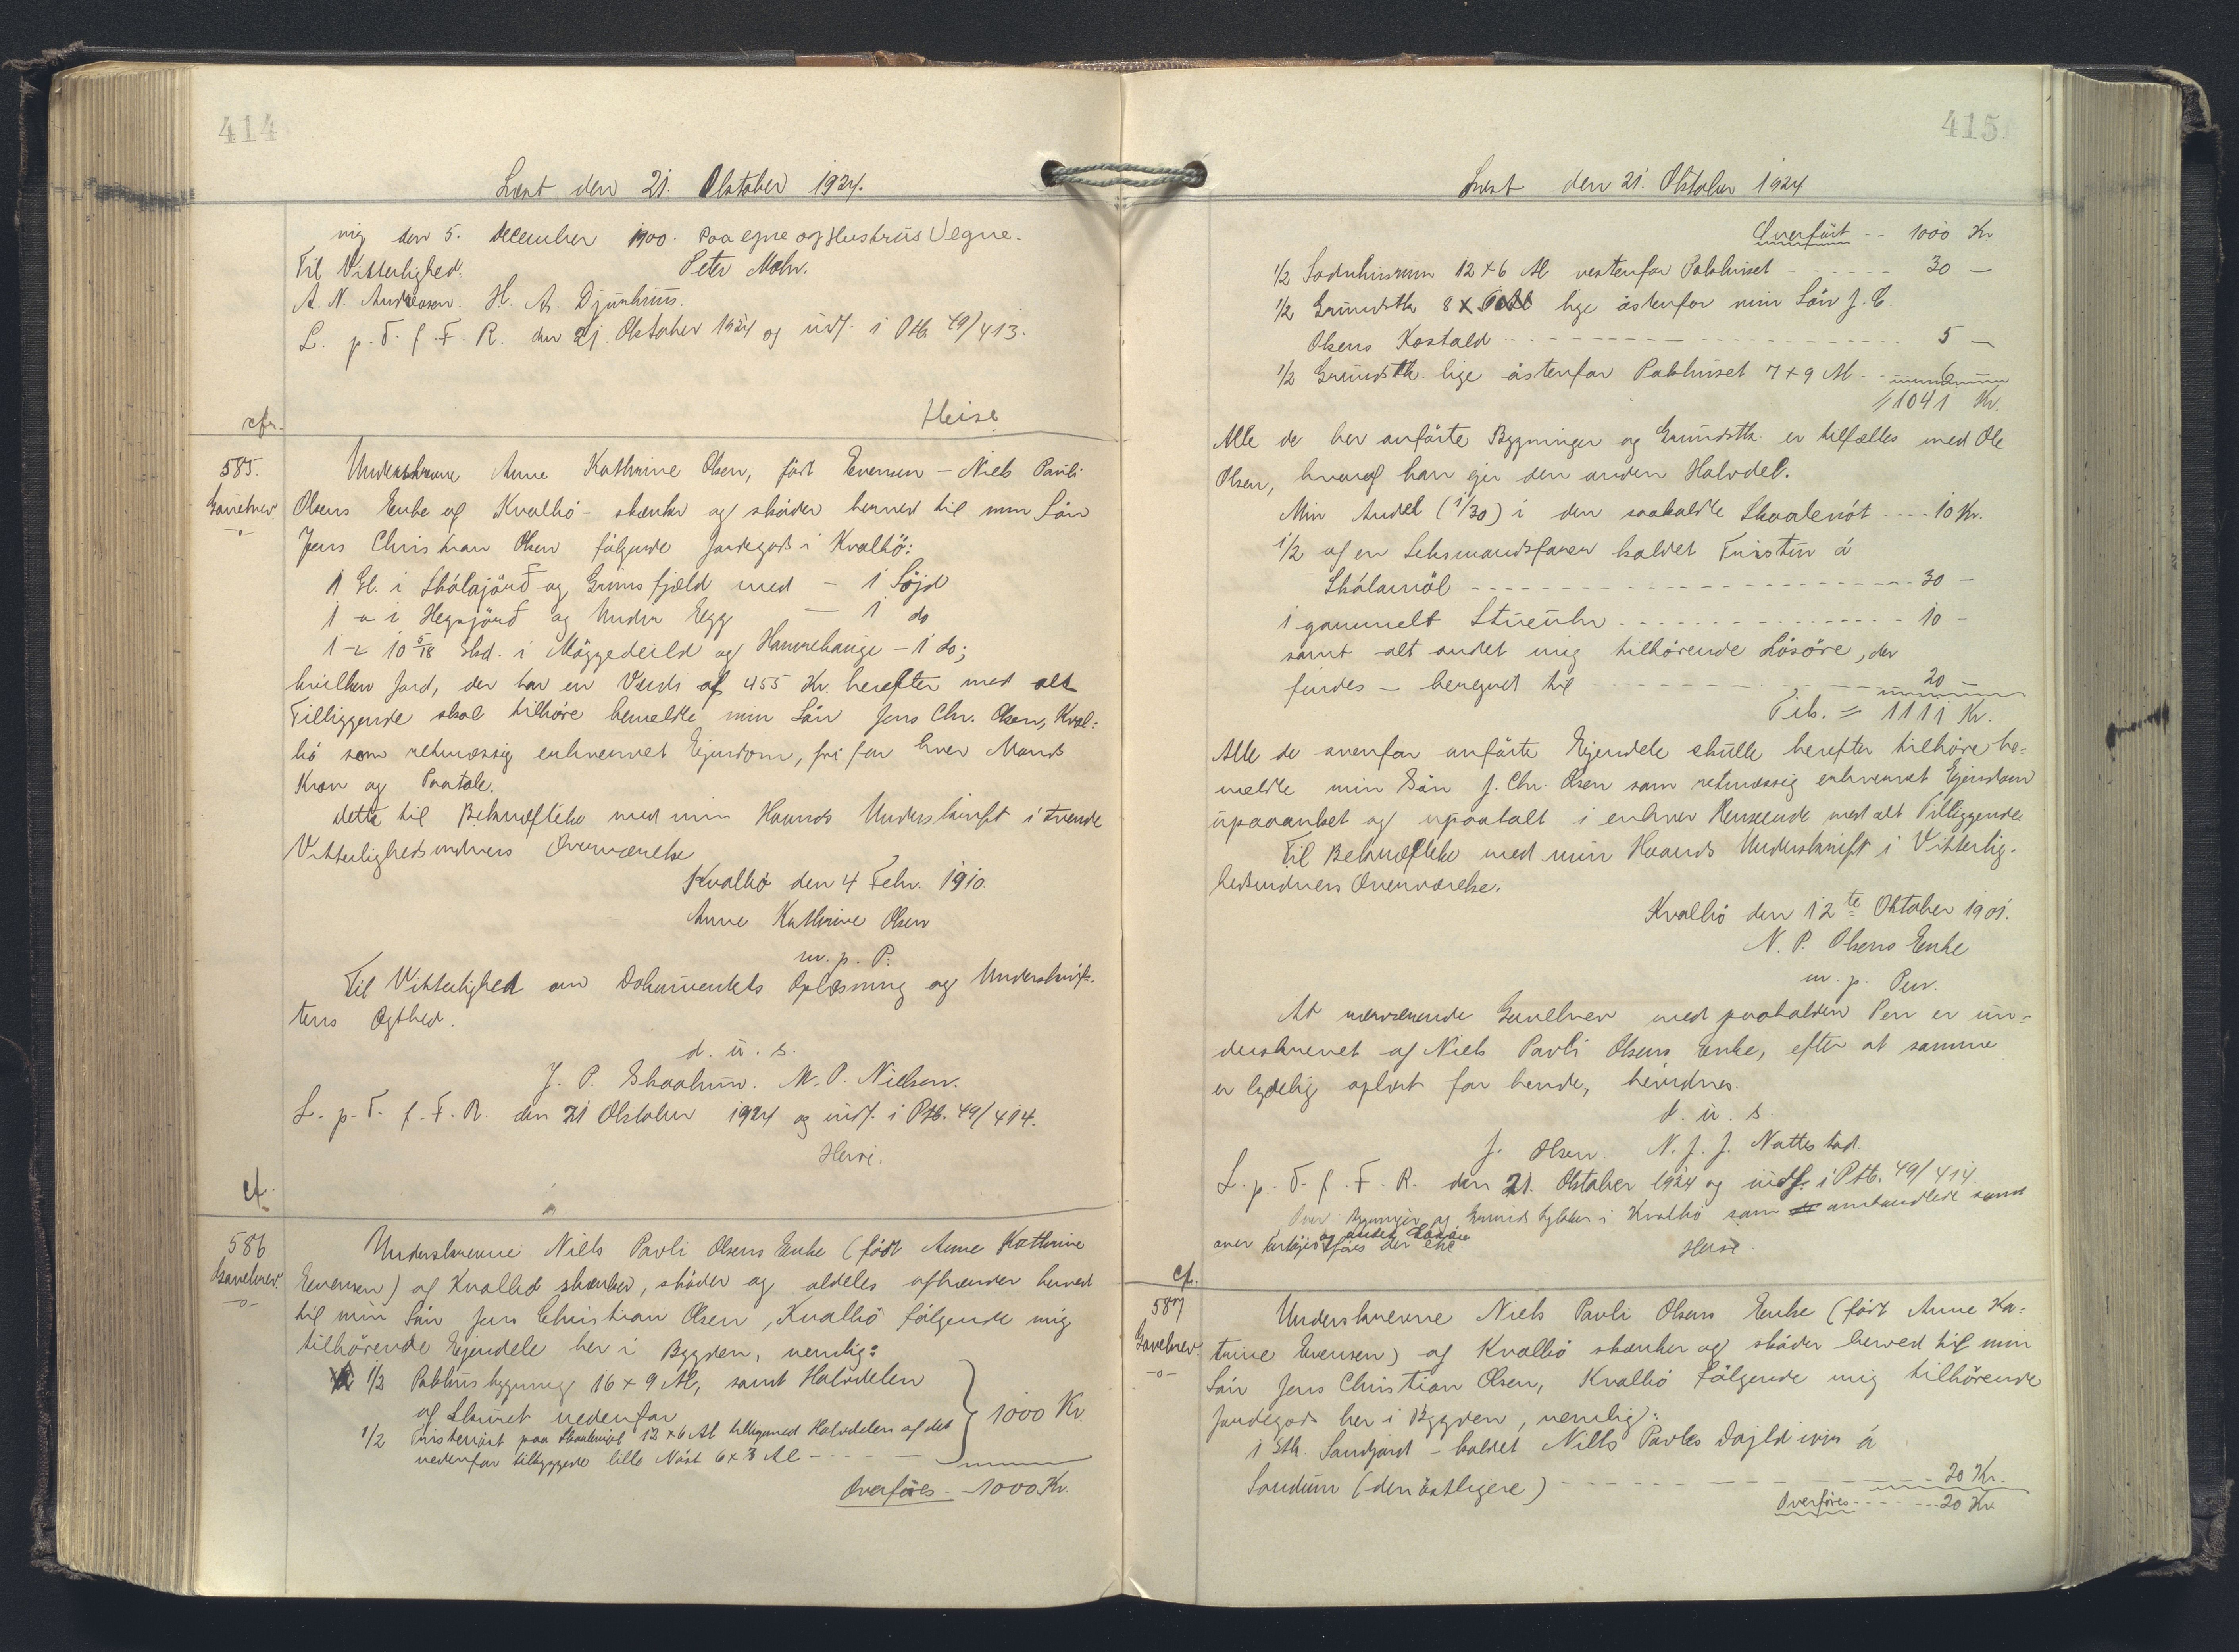 414
Læst den 21. Oktober 1924.
mig den 5. December 1900. Paa egne og Hustrus Vegne.
Til Vitterlighed. Peter Mohr.
A. N. Andreasen. H. A. Djurhuus.
L. p. T. f. F. R. den 21. Oktober 1924 og indf. i Ptb. 49/413.
Heise
cfr.
585. Underskrevne Anne Kathrine Olsen, født Evensen - Niels Pauli
Gavebrev. Olsens Enke af Kvalbø - skænker og skøder herved til min Søn
-o- Jens Christian Olsen følgende Jordegods i Kvalbø:
1 Gl. i Skálajörd og Grimsfjæld med - 1 Söjd
1 - i Hegajörd og Undir Egg - 1 do
1 - 10 5/18 Skd. i Möggedeild og Hamrehauge - 1 do;
hvilken Jord, der har en Værdi af 455 Kr. herefter med alt
Tilliggende skal tilhøre bemeldte min Søn Jens Chr. Olsen, Kval=
bø som retmæssig erhvervet Ejendom, fri for hver Mands
Krav og Paatale.
Dette til Bekræftelse med min Haands Underskrift i tvende
Vitterlighedsvidners Overværelse
Kvalbø den 4 Febr. 1910.
Anne Kathrine Olsen
m. p. P.
Til Vitterlighed om Dokumentets Oplæsning og Underskrif-
tens Ægthed.
d. u. s.
J. P. Skaalum. M. P. Nielsen.
L. p. T. f. F. R. den 21 Oktober 1924 og indf. i Ptb. 49/414.
Heise.
cf.
586 Underskrevne Niels Pavli Olsens Enke (født Anne Kathrine
Gavebrev. Evensen) af Kvalbø skænker, skøder og aldeles afhænder herved
-o- til min Søn Jens Christian Olsen, Kvalbø følgende mig
tilhörende Ejendele her i Bygden, nemlig:
1/2 Pakhusbygning 16 x 9 Al, samt Halvdelen
af Skuret nedenfor
1/2 paa 12 x 6 Al tilligemed Halvdelen af det
nedenfor tilbyggede lille Nöst 6 x 3 Al - - - 1000 Kr.
Overføres - 1000 Kr.
415
Læst den 21. Oktober 1924
Overført -- 1000 Kr
1/2 12 x 6 Al vestenfor Pakhuset - - - 30 -
1/2 Grundstk 8 x lige østenfor min Søn J. C.
Olsens Kostald - - - 5 -
1/2 Grundstk. lige østenfor Pakhuset 7 x 9 Al - - 6
1041 Kr.
Alle de her anførte Bygninger og Grundstk. er tilfælles med Ole
Olsen, hvoraf han ejer den anden Halvdel.
Min Andel (1/30) i den saakaldte Skaalenót .... 10 Kr.
1/2 af en Seksmandsfarer kaldet á
Skálamöl - - - 30 -
1 gammelt Stueuhr - - - 10 -
samt alt andet mig tilhörende Lösöre, der
findes - beregnet til - - - 20 -
Tils. = 1111 Kr.
Alle de ovenfor anførte Ejendele skulle herefter tilhøre be-
meldte min Søn J. Chr. Olsen som retmæssig erhvervet Ejendom
upaaanket og upaatalt i enhver Henseende med alt Tilliggende.
Til Bekræftelse med min Haands Underskrift i Vitterlig-
hedsvidners Overværelse.
Kvalbø den 12te Oktober 1901.
N. P. Olsens Enke
m. p. Pen.
At nærværende Gavebrev med paaholden Pen er un=
derskrevet af Niels Pavli Olsens Enke, efter at samme
er lydelig oplæst for hende, bevidnes.
d. u. s.
J. Olsen. N. J. J. Nattestad
L. p. T. f. F. R. den 21. Oktober 1924 og indf. i Ptb. 49/414.
Over Bygninger og Grundstykker i Kvalbø som omhandlede samt
over Fartøjer og andet Løsøre føres der ehe.
Heise.
cf.
587 Underskrevne Niels Pavli Olsens Enke (født Anne Ka=
Gavebrev. trine Evensen) af Kvalbø skænker og skøder herved til min
-o- Søn Jens Christian Olsen, Kvalbø følgende mig tilhörende
Jordegods her i Bygden, nemlig:
1 Stk. Sandjord - kaldet Nills Pavles Dajld á
Sandum (den östligere) - - - 20 Kr.
Overføres - - - 20 Kr.